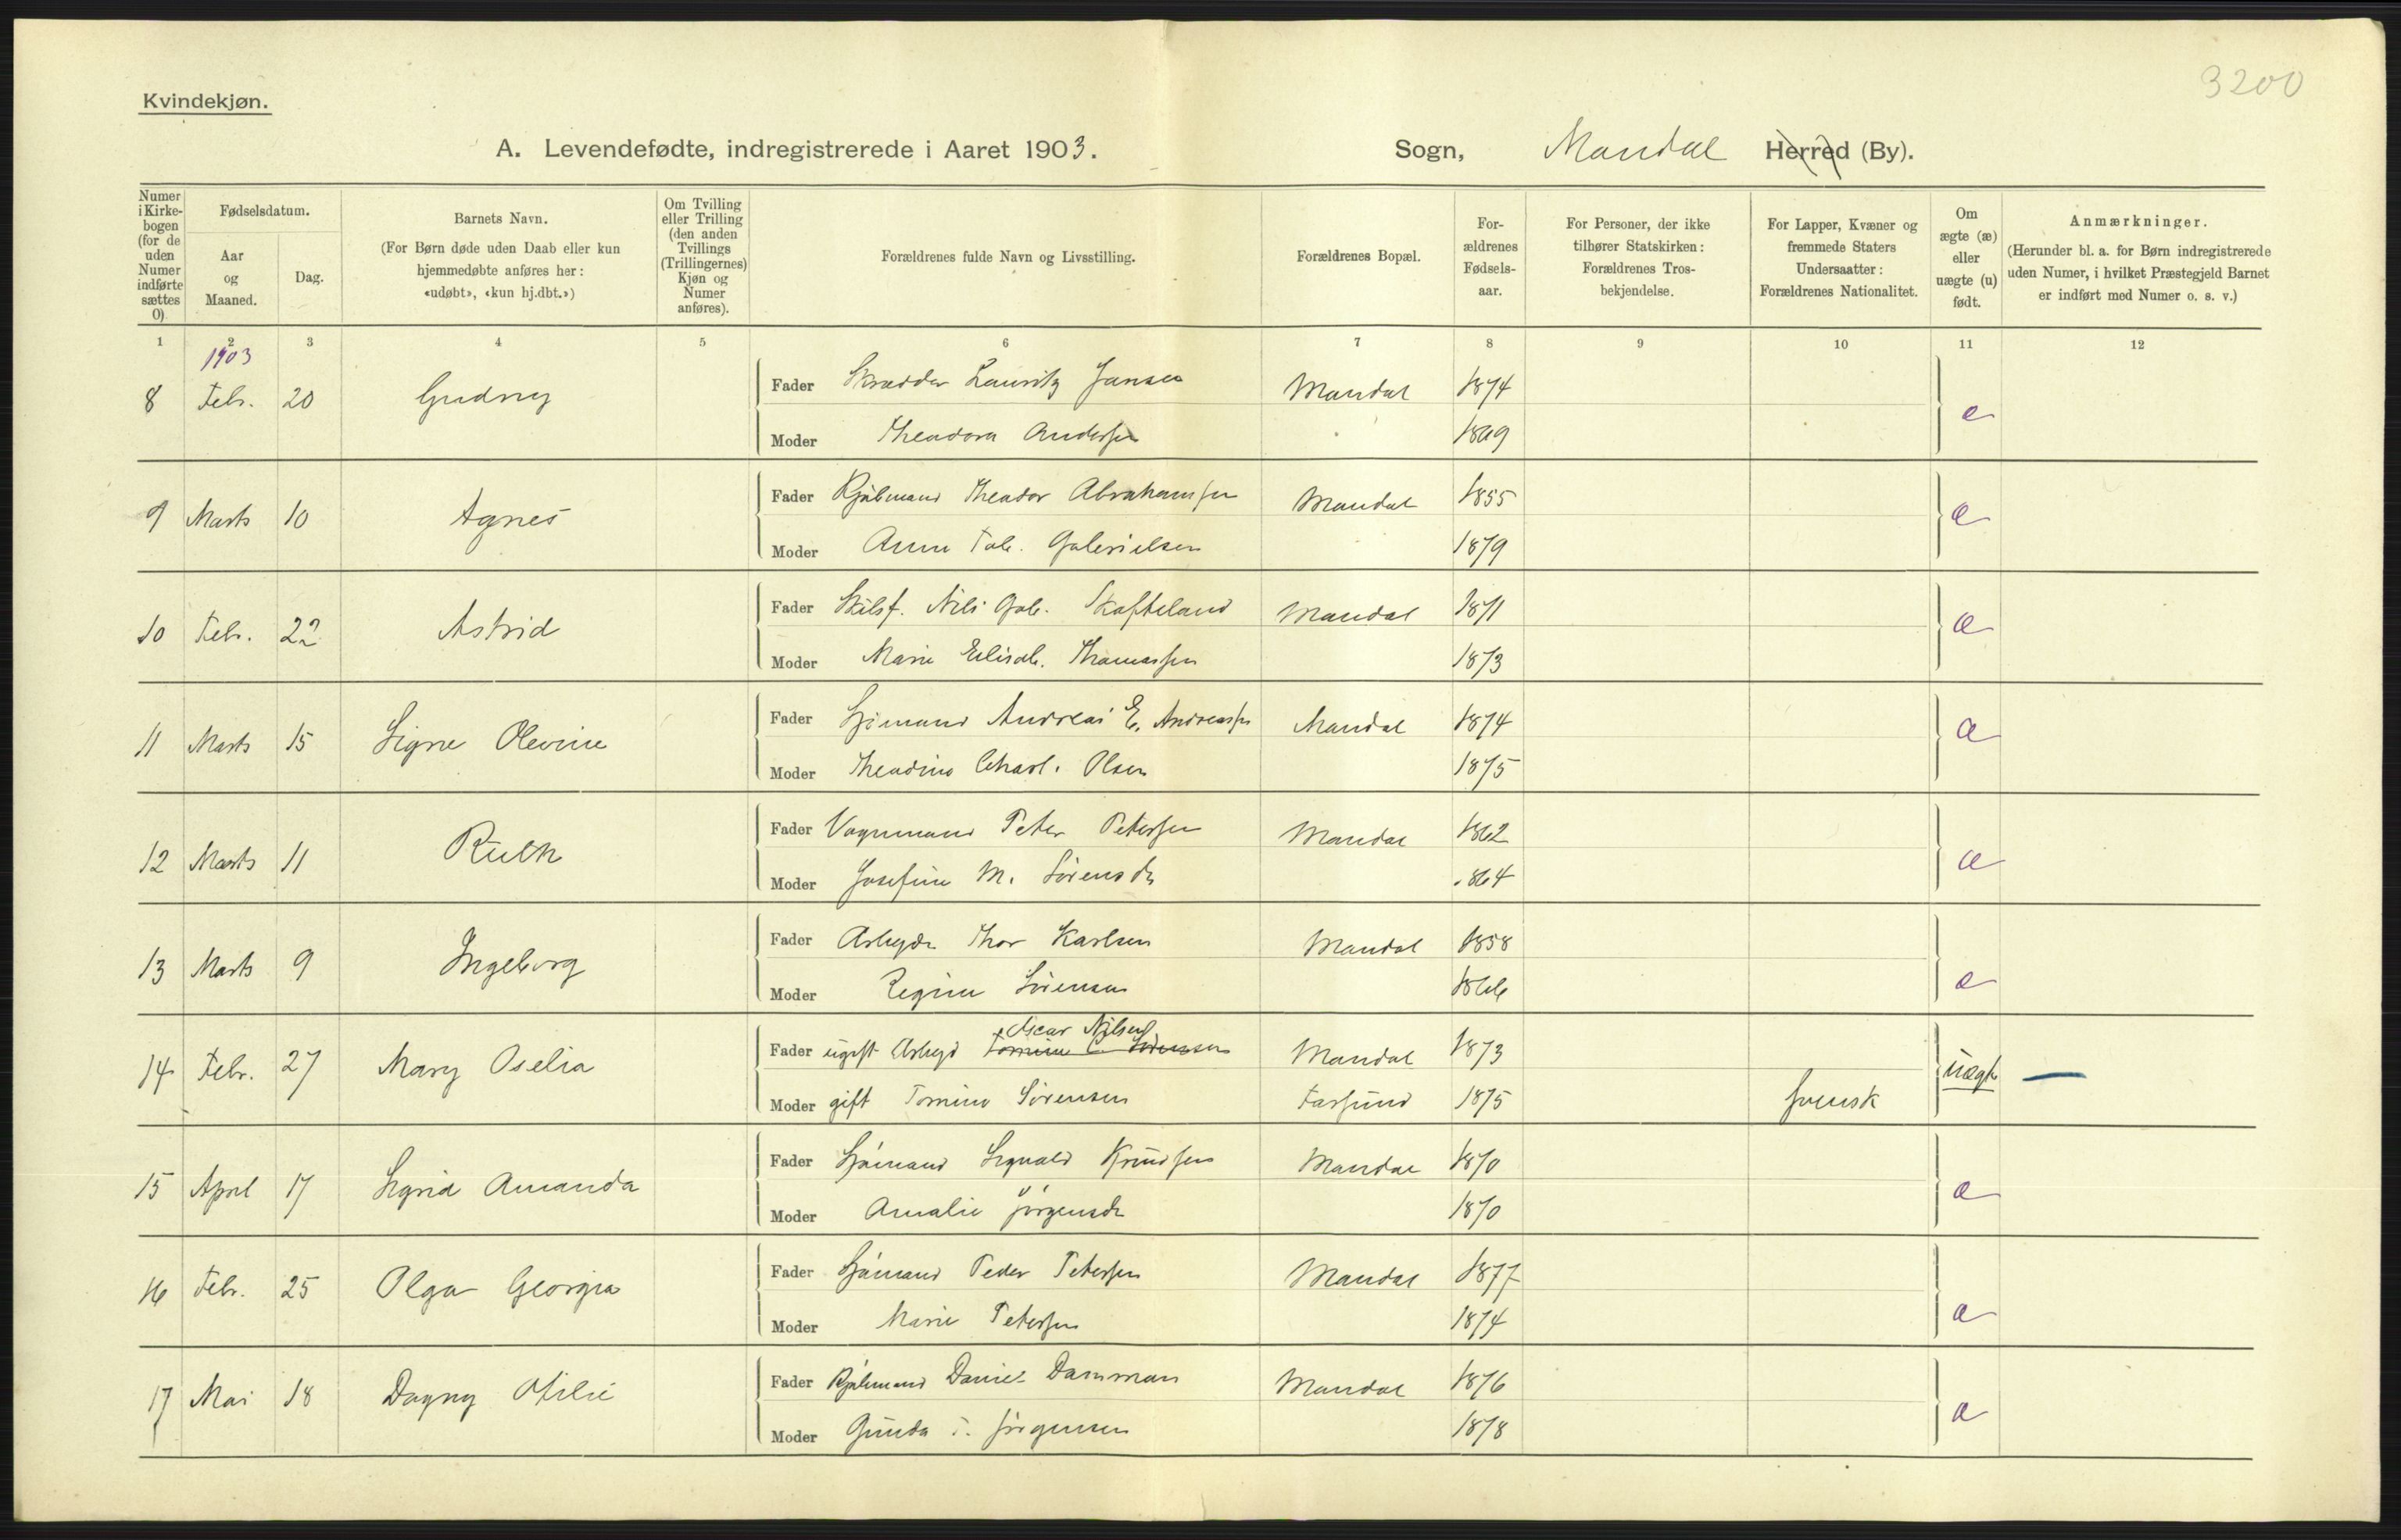 3200
Kvindekjøn.
A. Levendefødte, indregistrerede i Aaret 1903. Sogn, Mandal Herred (By).
Numer i Kirkebogen (for de uden Numer indførte sættes 0)
Fødselsdatum.
Aar og Maaned.
Dag.
Barnets Navn.
(For Børn døde uden Daab eller kun hjemmedøbte anføres her: «udøbt», «kun hj.dbt.»)
Om Tvilling eller Trilling (den anden Tvillings (Trillingernes) Kjøn og Numer anføres).
Forældrenes fulde Navn og Livsstilling.
Forældrenes Bopæl.
Forældrenes Fødselsaar.
For Personer, der ikke tilhører Statskirken: Forældrenes Trosbekjendelse.
For Lapper, Kvæner og fremmede Staters Undersaatter: Forældrenes Nationalitet.
Om ægte (æ) eller uægte (u) født.
Anmærkninger.
(Herunder bl. a. for Børn indregistrerede uden Numer, i hvilket Præstegjeld Barnet er indført med Numer o. s. v.)
1 2 3 4 5 6 7 8 9 10 11 12
1903
8 Febr. 20 Gudny Fader Skrædder Lauritz Jansen Mandal 1874 æ
Moder Theodora Anderssen 1869
9 Marts 10 Agnes Fader Theodor Abrahamsen Mandal 1855 æ
Moder Anna Tob. Gabrielsen 1879
10 Febr. 22 Astrid Fader Nils Gab. Skofteland Mandal 1871 æ
Moder Marie Elisab. Thomassen 1873
11 Marts 15 Signe Olevine Fader Sjømand Andreas E. Andreassen Mandal 1874 æ
Moder Theodine Charl. Olsen 1875
12 Marts 11 Ruth Fader Vognmand Peter Petersen Mandal 1862 æ
Moder Josefine M. Sørensdr 1864
13 Marts 9 Ingeborg Fader Arbeyder Thor Karlsen Mandal 1858 æ
Moder Regine Sørensen 1866
14 Febr. 27 Mary Oselia Fader ugift Arbeyd Oscar Nilsen Tomine C. Sørensen Mandal 1873 uægte —
Moder gift Tomine Sørensen Farsund 1875 svensk
15 April 17 Sigrid Amanda Fader Sjømand Sigvald Knudsen Mandal 1870 æ
Moder Amalie Jørgensdr 1870
16 Febr. 25 Olga Georgia Fader Sjømand Peder Petersen Mandal 1877 æ
Moder Marie Petersen 1874
17 Mai 18 Dagny Otilie Fader Daniel Damman Mandal 1876 æ
Moder Gunda T. Jørgensen 1878